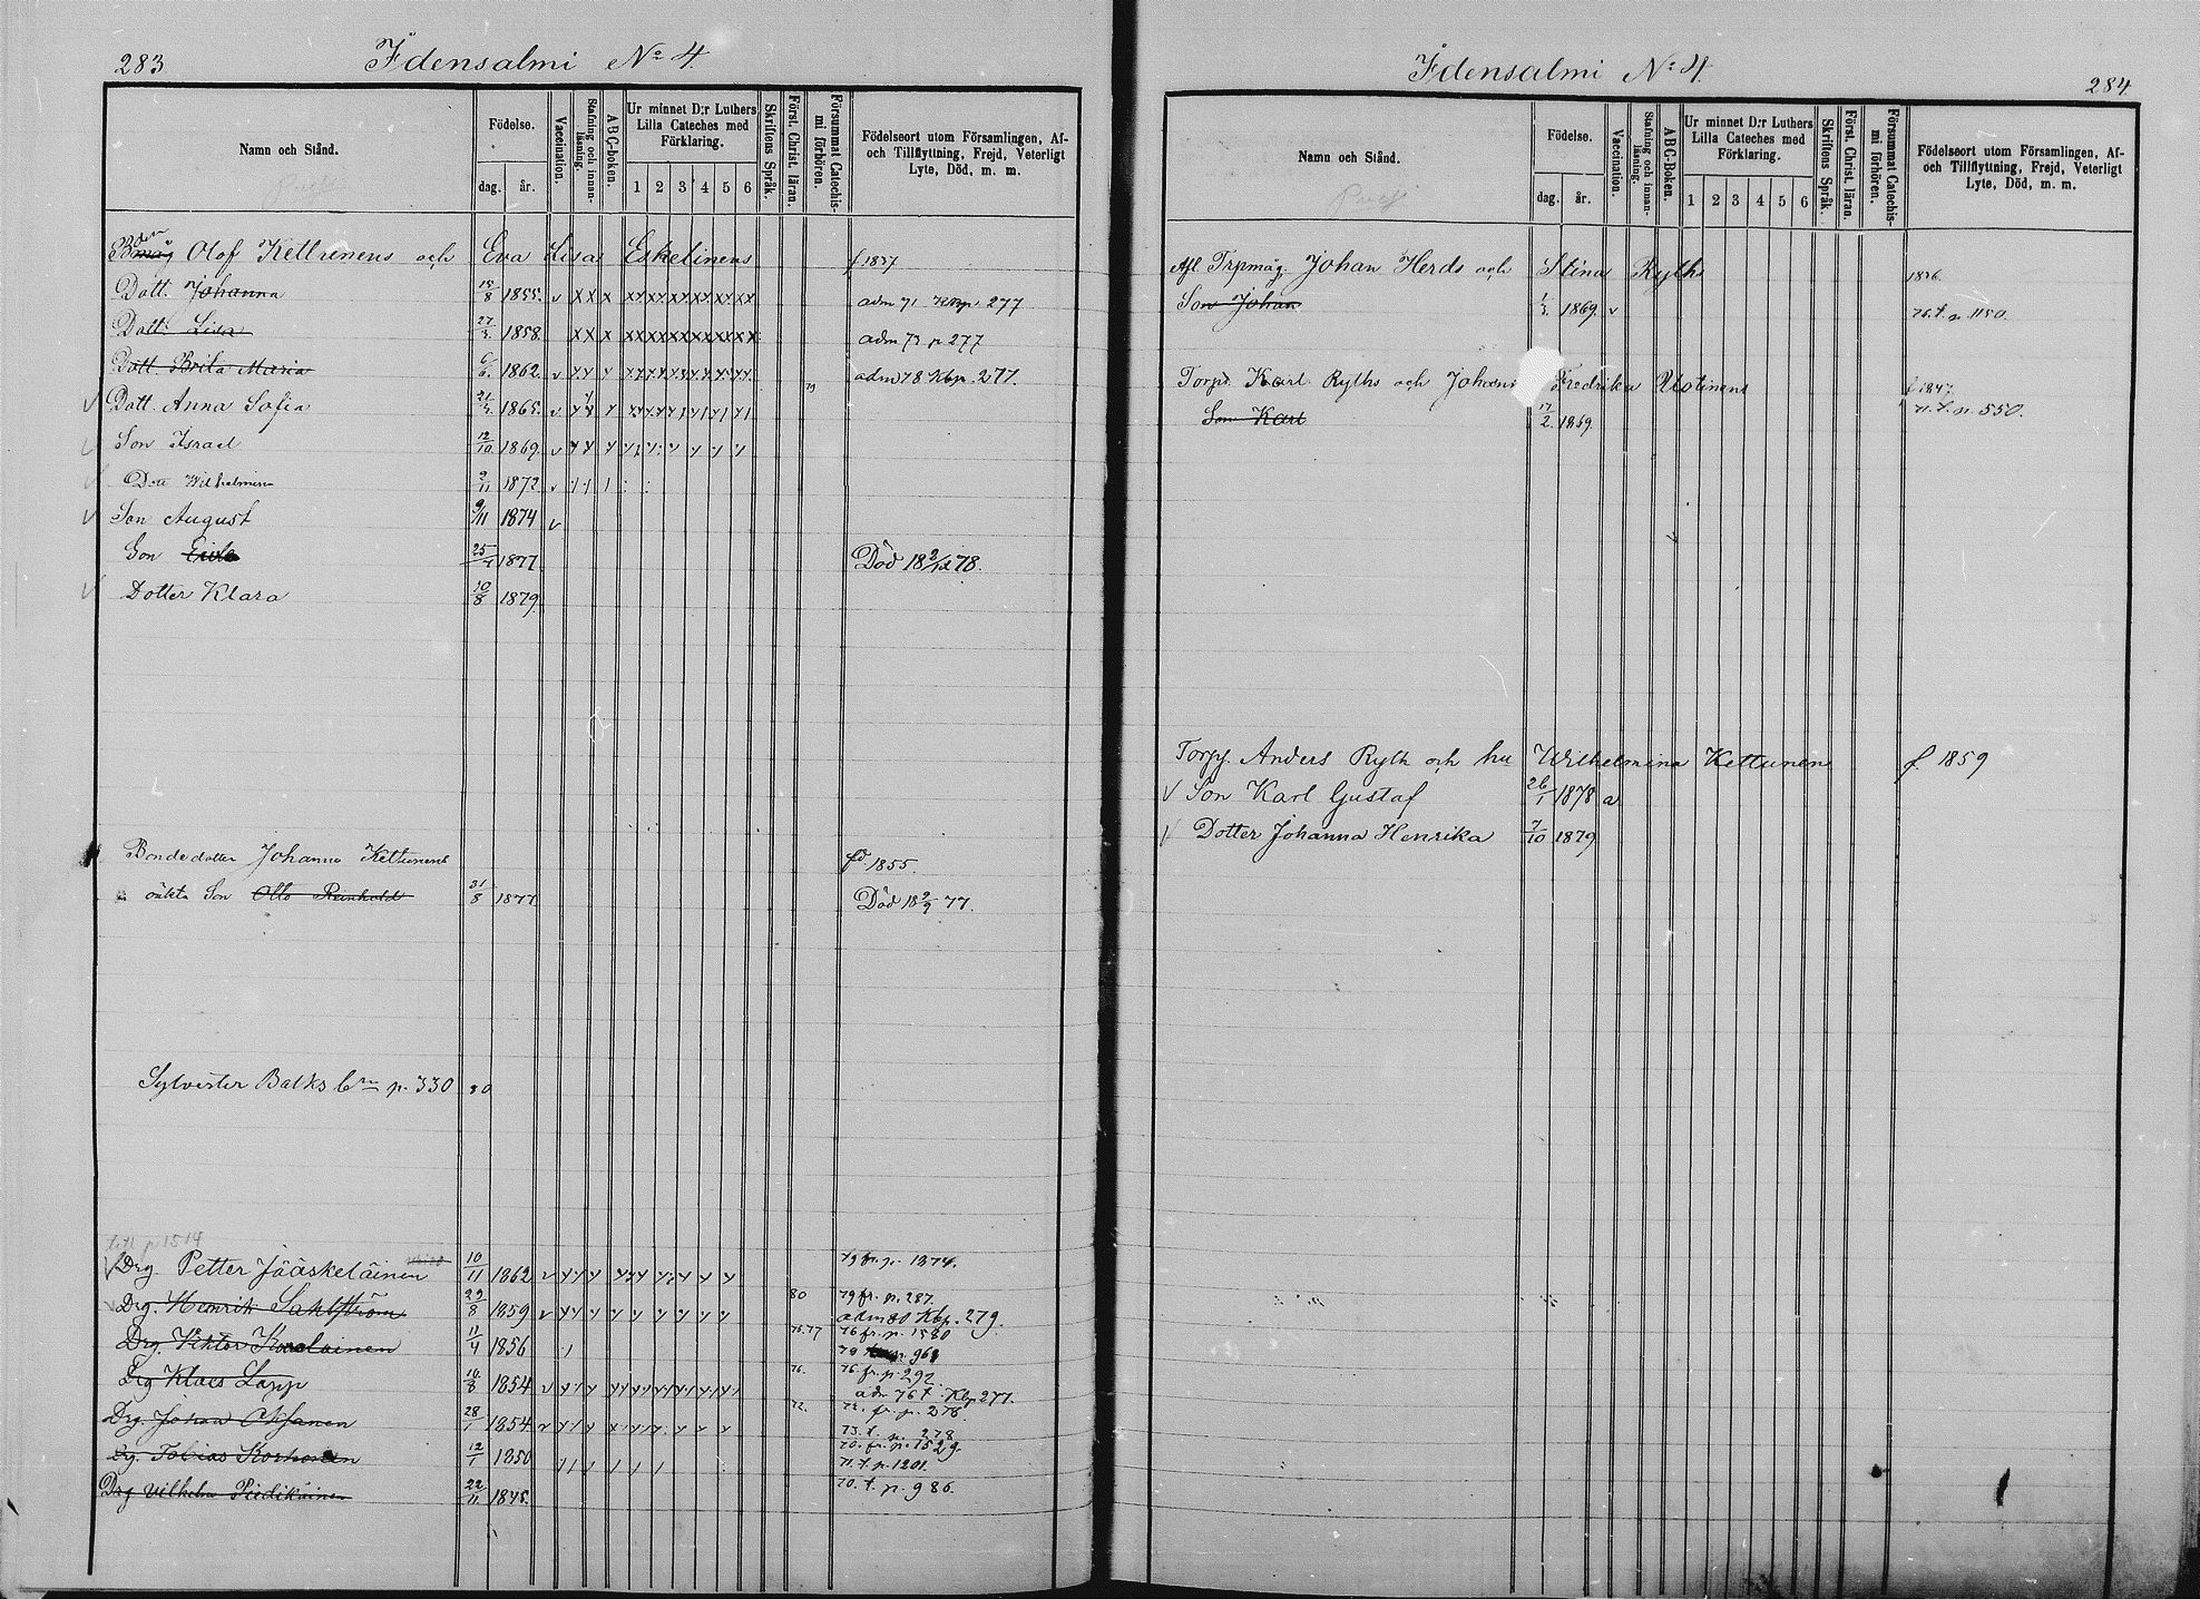 283
Idensalmi No 4.
Namn och Stånd.
Födelse.
dag.
år.
Vaccination.
Stafning och innan-läsning.
ABC-boken.
Ur minnet D:r Luthers Lilla Cateches med Förklaring.
1 2 3 4 5 6
Skriftens Språk.
Först. Christ. läran.
Försummat Catechis-mi förhören.
Födelseort utom Församlingen, Af- och Tillflyttning, Frejd, Veterligt Lyte, Död, m. m.
Olof Kettunens och Eva Lisa Eskelinens f 1837
Dott. Johanna 15/8 1855. v x x x xx xx xx xx xx xx adm 71 Kbp. 277
Dott. Lisa 27/3 1858. x x x xx xx xx xx xx xx adm 73 p 277
Dott. Brita Maria 6/6. 1862. v 79 adm 78 Kbp. 277.
v Dott. Anna Sofia 1865. v
Son Israel 12/10 1869. v
Dott Wilhelmina 2/11 1872. v
v Son August 9/11 1874 v
Son 1877 Död 18 2/12 78.
v Dotter Klara 10/8 1879.
Bondedotter Johanna Kettunens fd. 1855.
oäkta Son Otto Reinhold 31/8 1877 Död 18 2/9 77.
Sylvester Balks p. 330 80
p 1514
v Drg. Petter Jääskeläinen 10/11 1862 v 79 fr. p. 1374.
Drg. Henrik Sahlström 29/8 1859 v 80 79 fr. p. 287.
adm 80 Kbp. 279.
Drg. Viktor 11/4 1856 76.77 76 fr. p. 1580
79 p. 961
Drg Klaes Lapp 10/8 1854 v 76. 76. fr. p. 292
adm 76 t. Kbp 277.
Drg. Johan Oksanen 28/1 1854 v 72. 72. fr. p. 278.
73. t. p. 278
Drg. Tobias Korhonen 12/1 1850 70. fr. p. 1529.
71. t. p. 1201.
Drg Vilhelm Piedikäinen 22/11 1845. 70. t. p. 986.
Idensalmi No 4.
284
Namn och Stånd.
Födelse.
dag.
år.
Vaccination.
Stafning och innan-läsning.
ABC-boken.
Ur minnet D:r Luthers Lilla Cateches med Förklaring.
1 2 3 4 5 6
Skriftens Språk.
Först. Christ. läran.
Försummat Catechis-mi förhören.
Födelseort utom Församlingen, Af- och Tillflyttning, Frejd, Veterligt Lyte, Död, m. m.
Afl. Trpmåg. Johan Herds och Stina Ryths 1836
Son Johan 1/3. 1869. v 76. t. p. 1150.
Torp. Karl Ryths och Johanna Fredrika Utotinens f 1847
Son Karl 17/2. 1869. 71. t. p. 550.
Torp. Anders Ryth och hu Wilhelmina Kettunen f. 1859
v Son Karl Gustaf 26/1 1878 a
v Dotter Johanna Henrika 7/10 1879